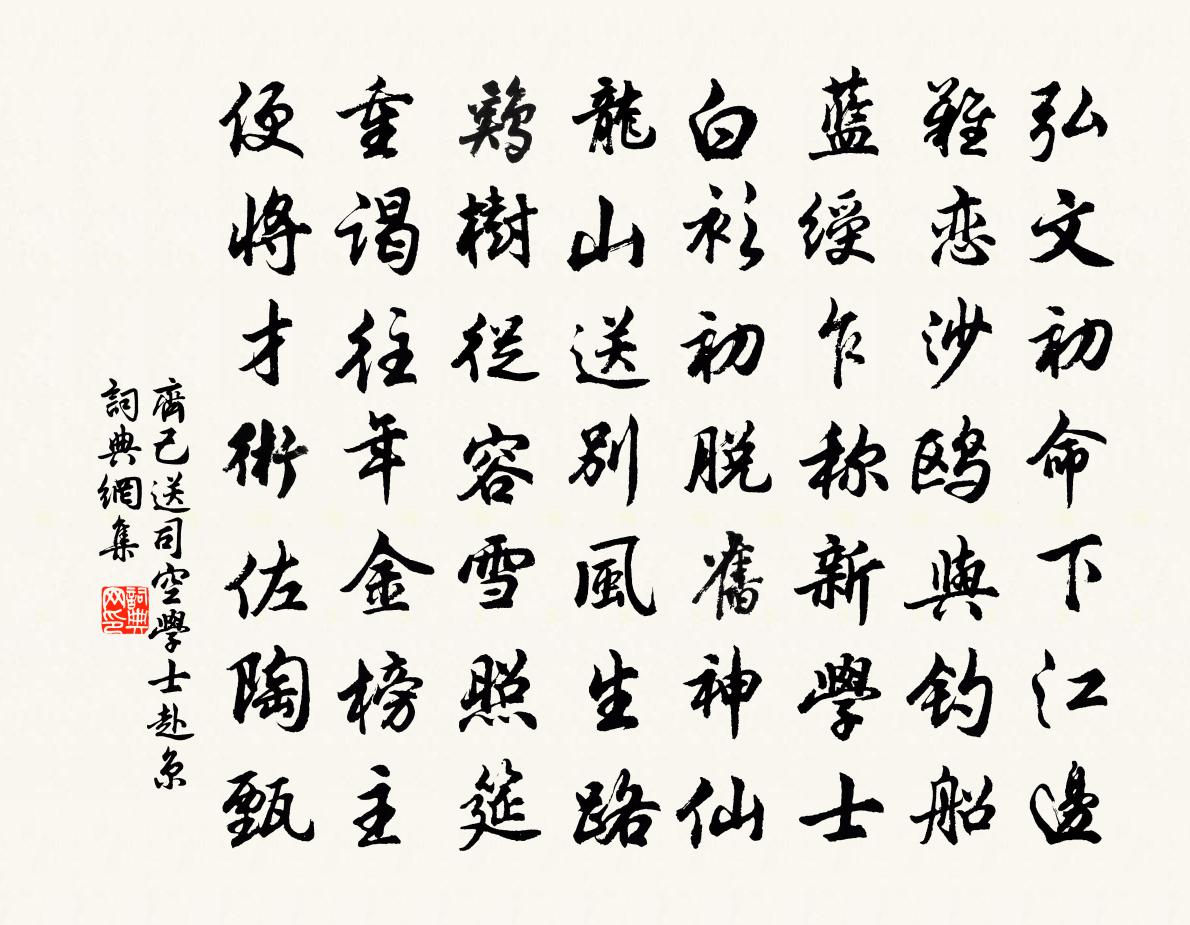 弘文初命下江邊
難恋沙鸥與钓船
藍綬乍称新學士
白衫初脱舊神仙
龍山送別風生路
鷄樹從容雪照筵
重謁往年金榜主
便將才術佐陶甄
齊己送司空學士赴京
詞典網集
詞典网印